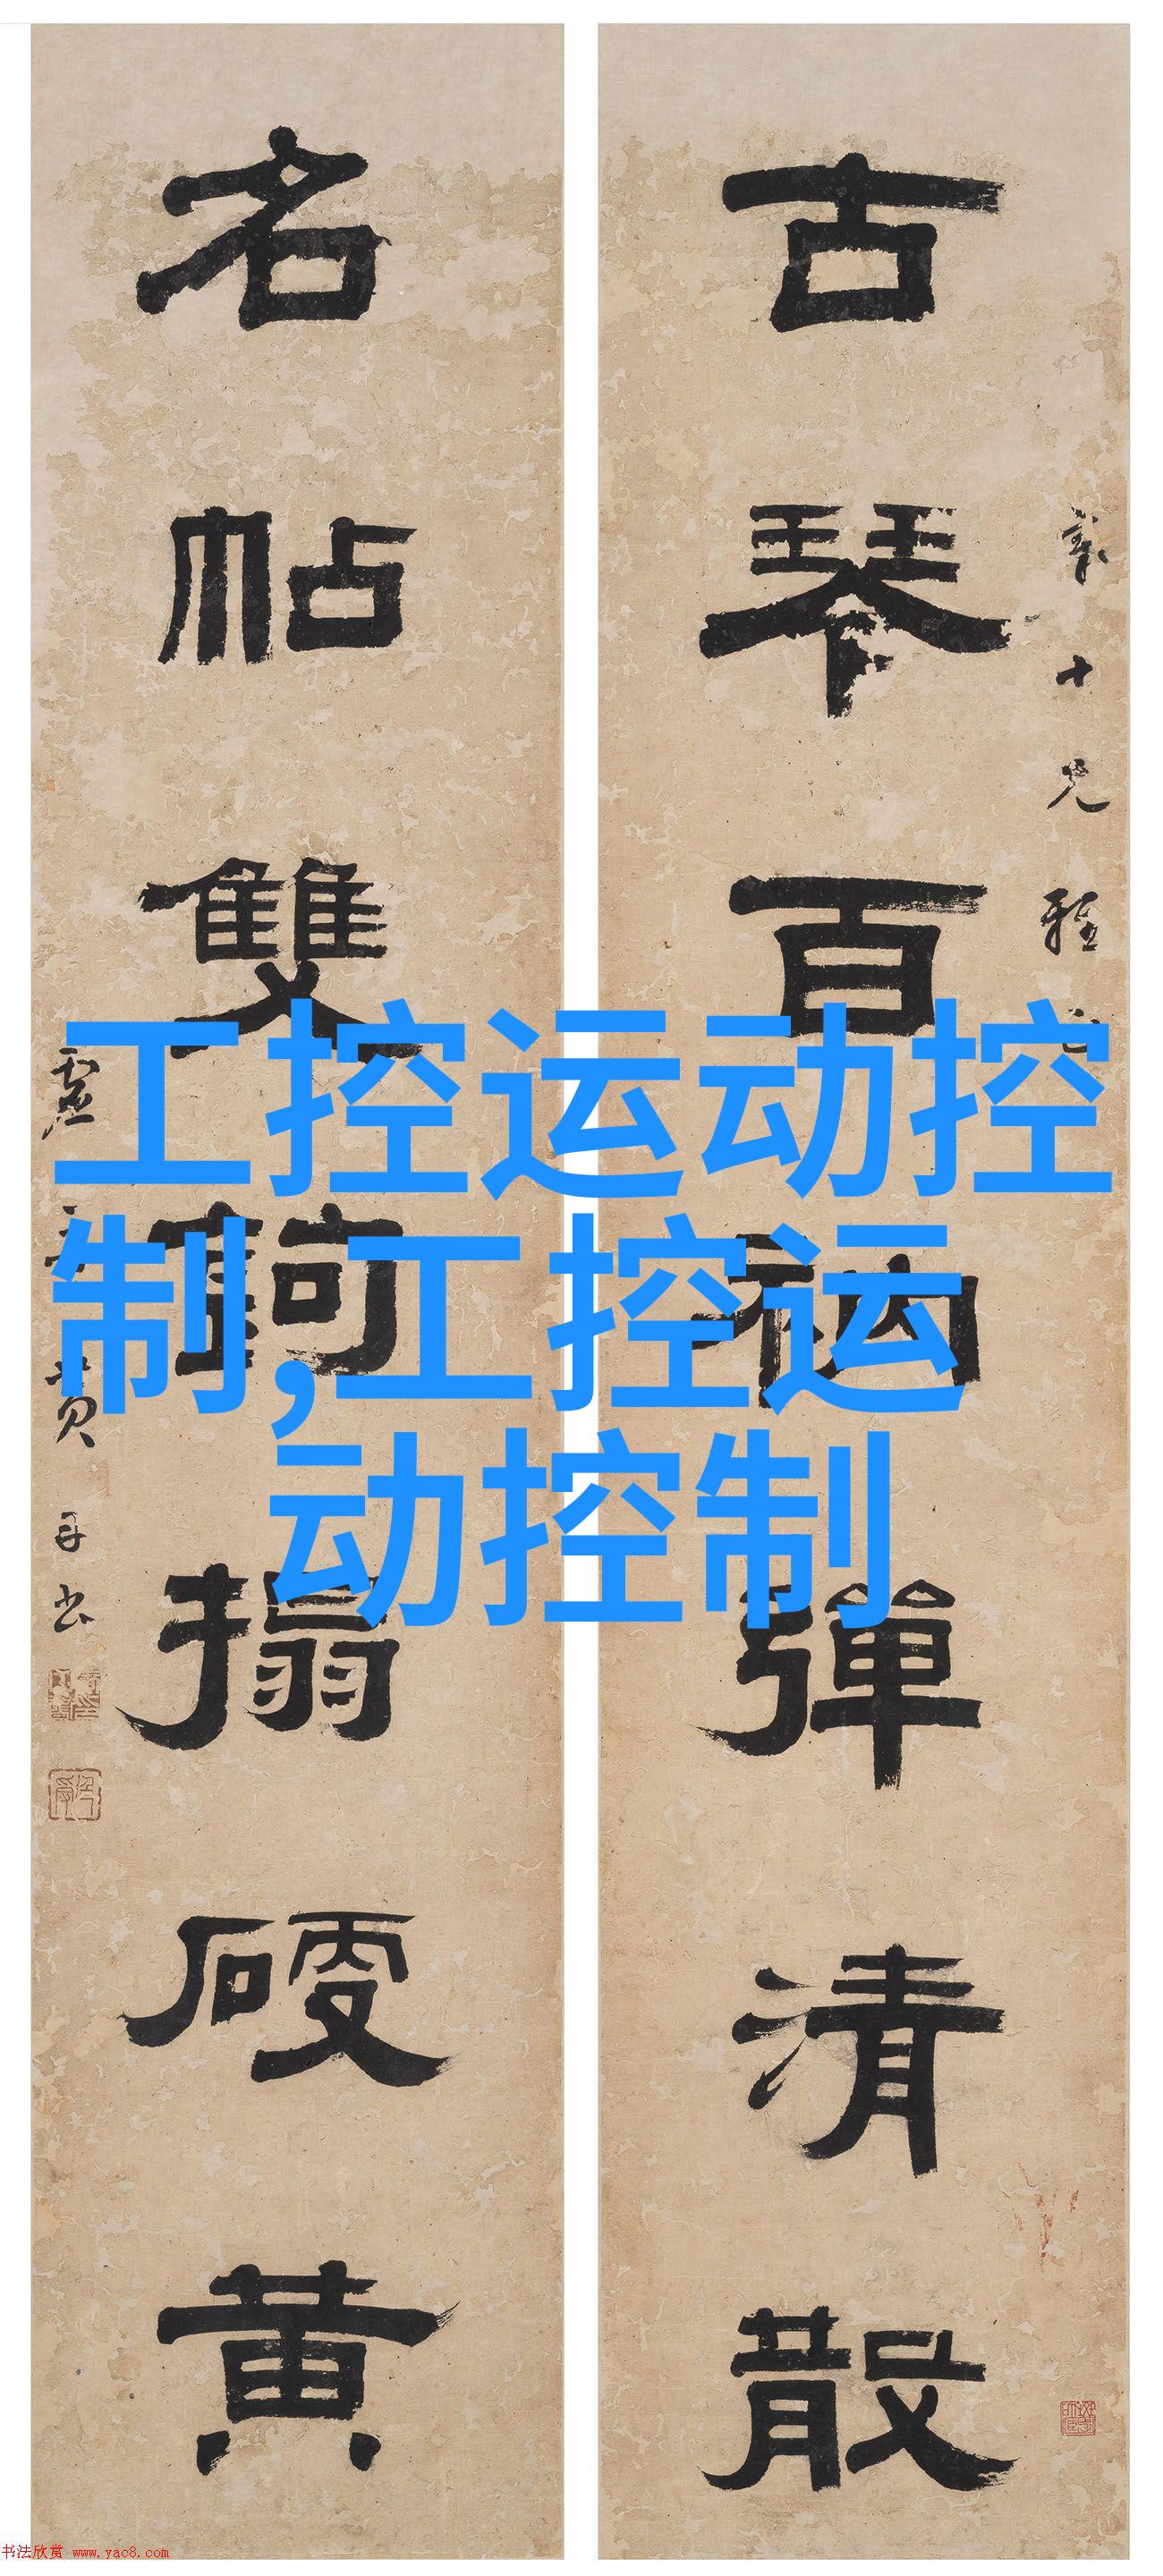 古琴百衲彈清散
十兄雅
名帖雙鉤搨硬黄
工控运动控
制,工控运
动控制
书法欣赏 www.yac8.com